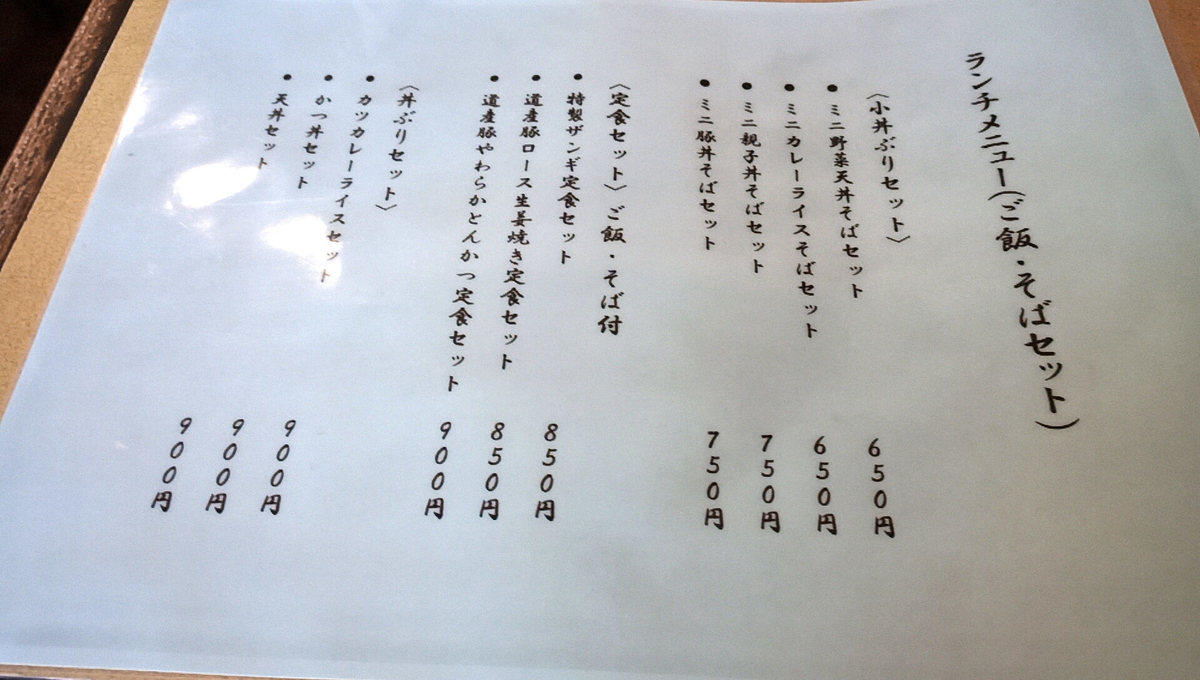 ランチメニュー(ご飯・そばセット)
〈小丼ぶりセット〉
● ミニ野菜天丼そばセット 650円
● ミニカレーライスそばセット 650円
● ミニ親子丼そばセット 750円
● ミニ豚丼そばセット 750円
〈定食セット〉ご飯・そば付
● 特製ザンギ定食セット 850円
● 道産豚ロース生姜焼き定食セット 850円
● 道産豚やわらかとんかつ定食セット 900円
〈丼ぶりセット〉
● カツカレーライスセット 900円
● かつ丼セット 900円
● 天丼セット 900円